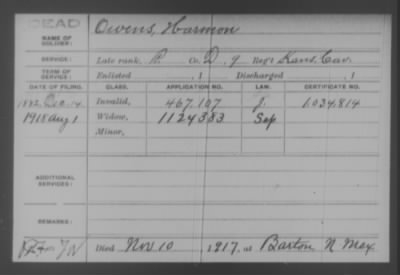 DEAD
NAME OF SOLDIER: Owens, Harmon
SERVICE: Late rank, P. Co. D, 9 Reg't Kans. Cav.
TERM OF SERVICE: Enlisted , 1 Discharged , 1
DATE OF FILING. CLASS. APPLICATION NO. LAW. CERTIFICATE NO.
1882, Dec. 14. Invalid, 467.107 J. 1.034.814
1918 Aug 1 Widow, 1124383 Sep
Minor,
ADDITIONAL SERVICES:
REMARKS:
Died Nov 10 1917, at Barton N Mex.